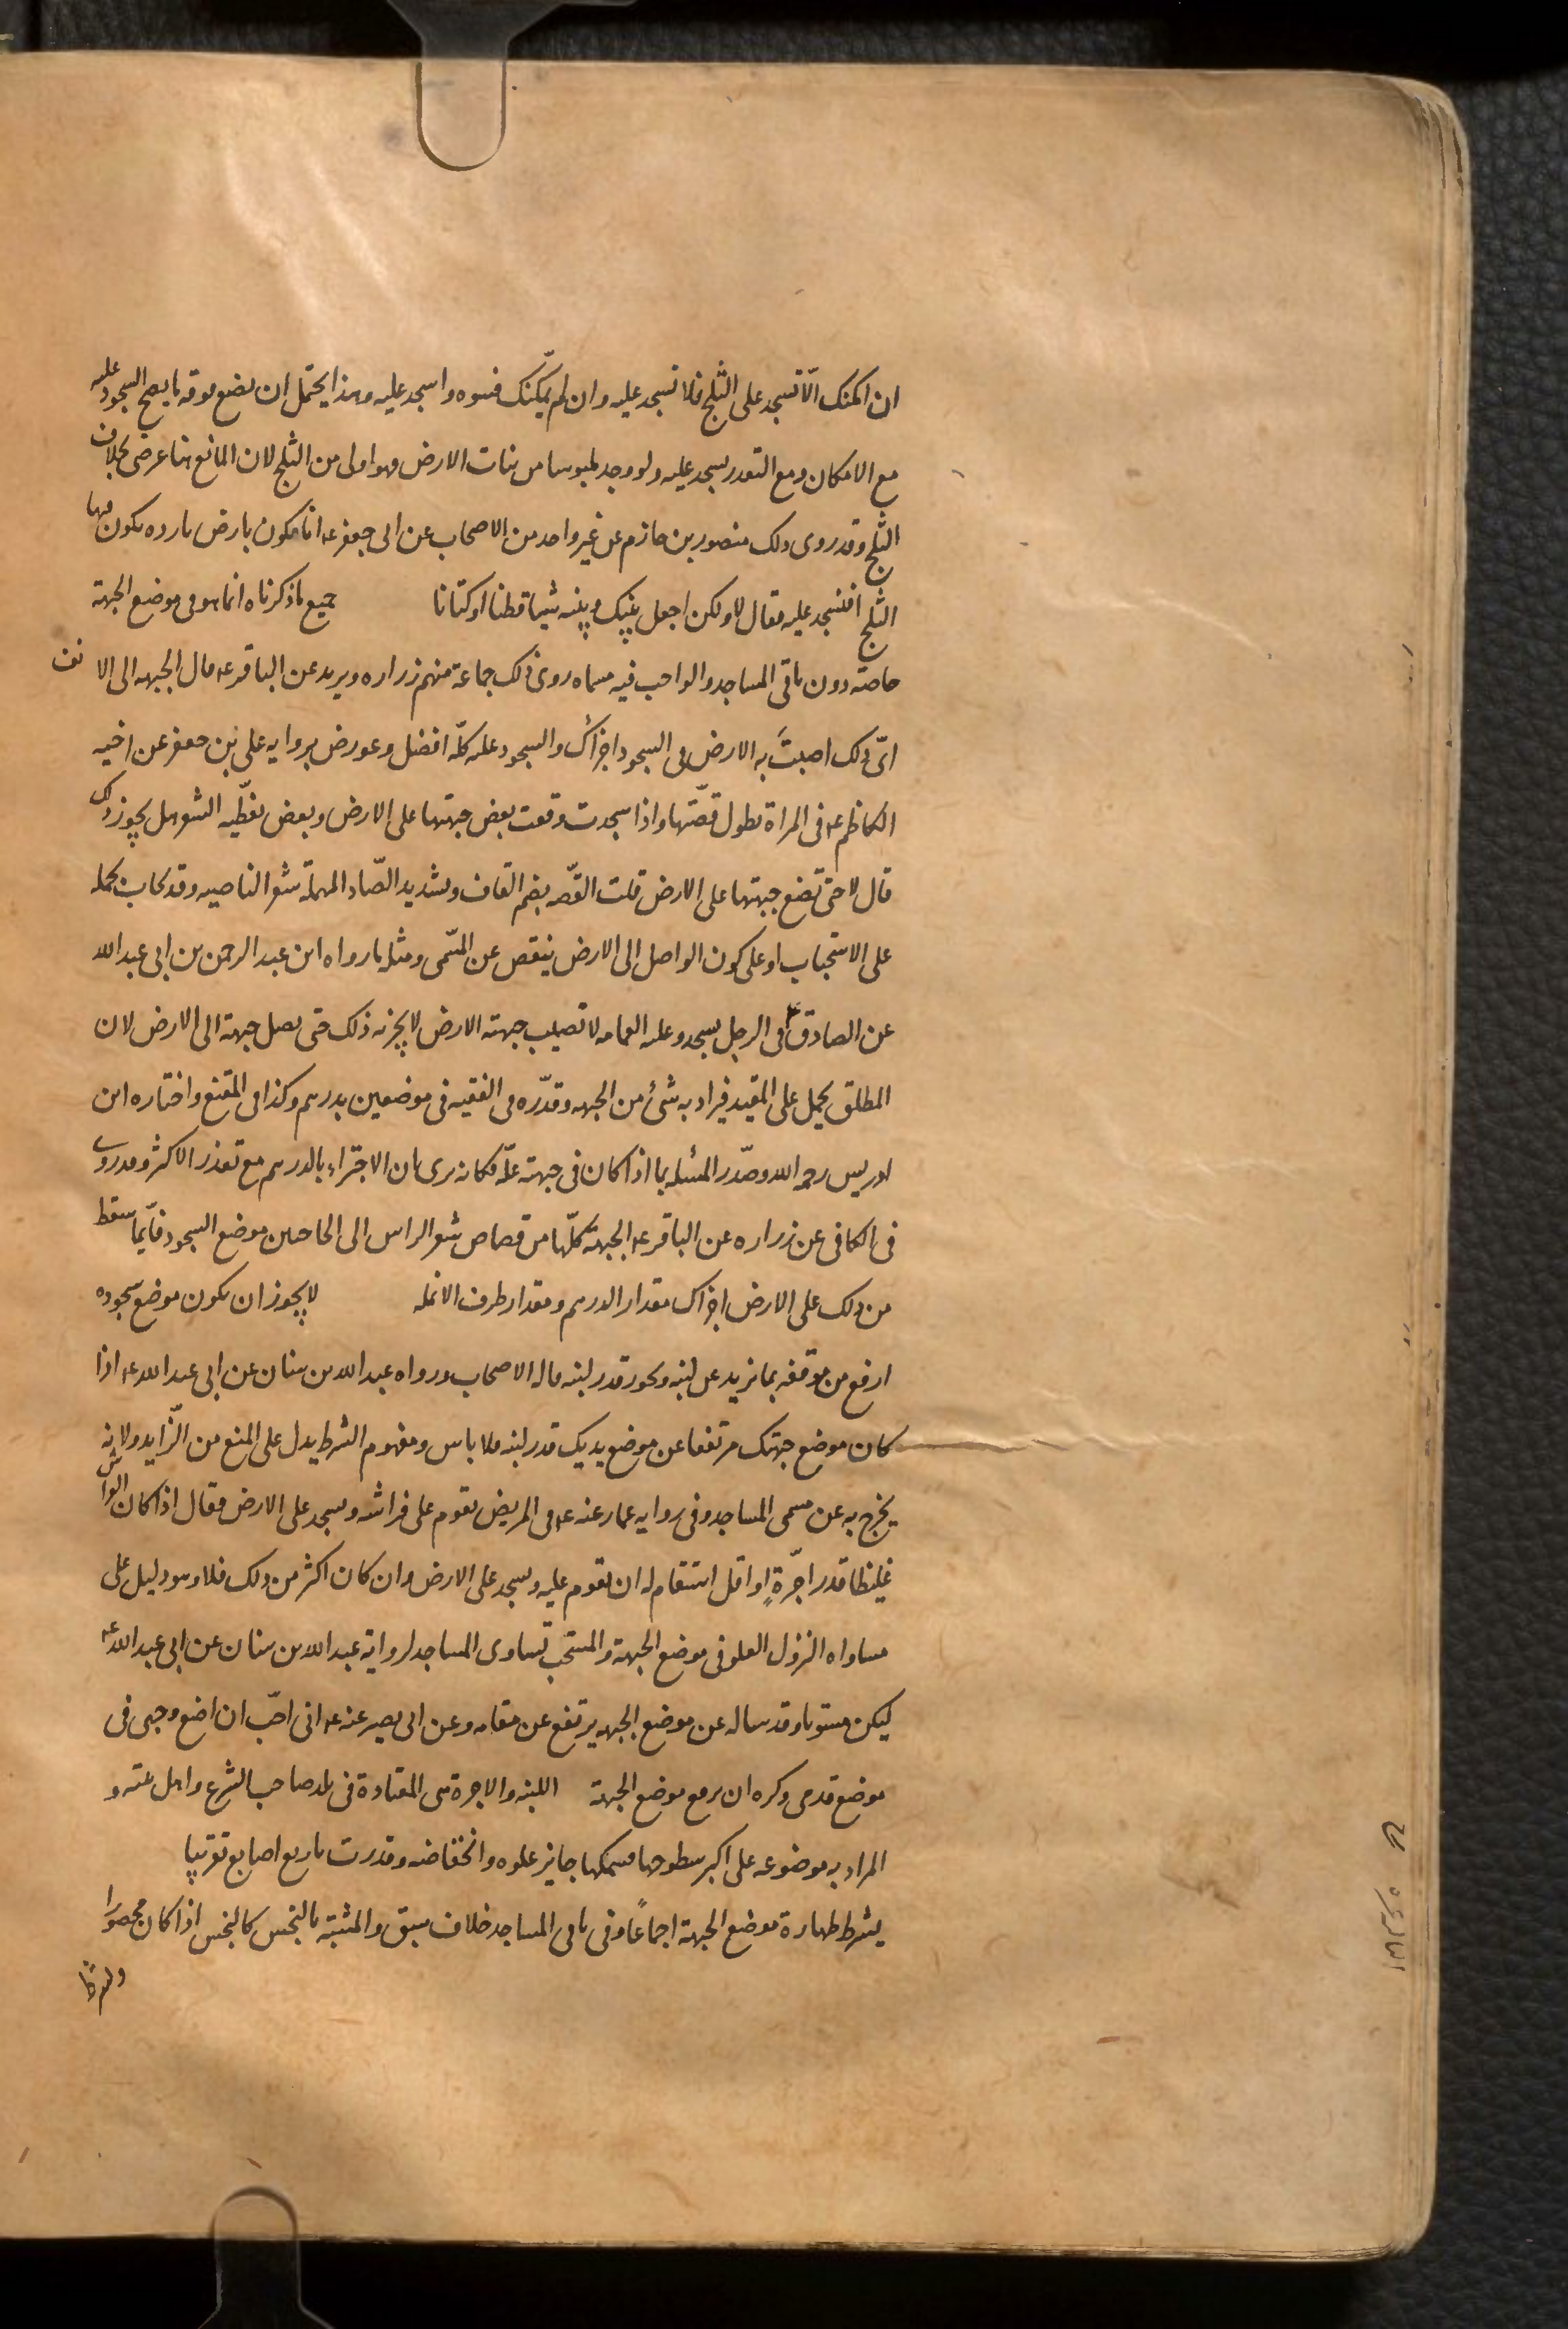 ان امكنك الّا تسجد على الثلج فلا تسجد عليه وان لم يمكّنك فسوه واسجد عليه وهذا يحتمل ان يضع فوقه ما يصح السجود عليه
مع الامكان ومع التعذر يسجد عليه ولو وجد ملبوسا من نبات الارض فهو اولى من الثلج لان المانع هنا عرضى بخلاف
الثلج وقد روى ذلك منصور بن حازم عن غير واحد من الاصحاب عن ابى جعفر عه انا نكون بارض بارده يكون فيها
الثلج افنسجد عليه فقال لا ولكن اجعل بينك وبينه شيئا قطنا او كتانا جميع ما ذكرناه انما هو فى موضع الجبهة
خاصة دون باقى المساجد والواجب فيه مسماه روى ذلك جماعة منهم زراره وبريد عن الباقر عه قال الجبهه الى الانف
اىّ ذلك اصبتَ به الارض فى السجود اجزأك والسجود عليه كلّه افضل وعورض بروايه على بن جعفر عن اخيه
الكاظم عه فى المراة تطول قصّتها واذا سجدت وقعت بعض جبهتها على الارض وبعض يغطّيه الشعر هل يجوز ذلك
قال لا حتى تضع جبهتها على الارض قلت القصّه بضم القاف وتشديد الصّاد المهملة شعر الناصيه وقد يجاب بحمله
على الاستحباب او على كون الواصل الى الارض ينقص عن المسّمى ومثله ما رواه ابن عبد الرحمن بن ابى عبد الله
عن الصادق ع فى الرجل يسجد وعليه العمامه لا تصيب جبهته الارض لا يجزيه ذلك حتى يصل جبهته الى الارض لان
المطلق يحمل على المقيد فيراد به شئ من الجبهه وقدّره فى الفقيه فى موضعين بدرهم وكذا فى المقنع واختاره ابن
ادريس رحمه الله وصدّر المسئله بما اذا كان فى جبهته علّة فكانه يرى بان الاجتزاء بالدرهم مع تعذر الاكثر وقد روى
فى الكافى عن زراره عن الباقر عه الجبهة كلّها من قصاص شعر الراس الى الحاجبين موضع السجود فايّما سقط
من ذلك على الارض اجزاك مقدار الدرهم ومقدار طرف الانمله لا يجوز ان يكون موضع سجوده
ارفع من موقفه بما يزيد عن لبنه ويجوز قدر لبنه قاله الاصحاب ورواه عبد الله بن سنان عن ابى عبد الله عه اذا
كان موضع جبهتك مرتفعا عن موضع يديك قدر لبنه فلا باس ومفهوم الشرط يدل على المنع من الزّايد ولانه
يخرج به عن مسمى المساجد وفى روايه عمار عنه عه فى المريض يقوم على فراشه ويسجد على الارض فقال اذا كان الفراش
غليظا قدر اجّرةٍ او اقل استقام له ان يقوم عليه ويسجد على الارض وان كان اكثر من ذلك فلا وهو دليل على
مساواه النزول العلو فى موضع الجبهة والمستحّب تساوى المساجد لرواية عبد الله بن سنان عن ابى عبد الله عه
ليكن مستويا وقد ساله عن موضع الجبهه يرتفع عن مقامه وعن ابى بصير عنه عه انى احبّ ان اضع وجهى فى
موضع قدمى وكره ان يرفع موضع الجبهة اللبنه والاجرة هى المعتادة فى بلد صاحب الشرع واهل عته و
المراد به موضوعه على اكبر سطوحها فسمكها جايز علوه وانخفاضه وقدرت باربع اصابع تقريبا
يشرط طهارة موضع الجبهة اجماعًا وفى باقى المساجد خلاف سبق والمشتبه بالنجس كالنجس اذا كان محصورا